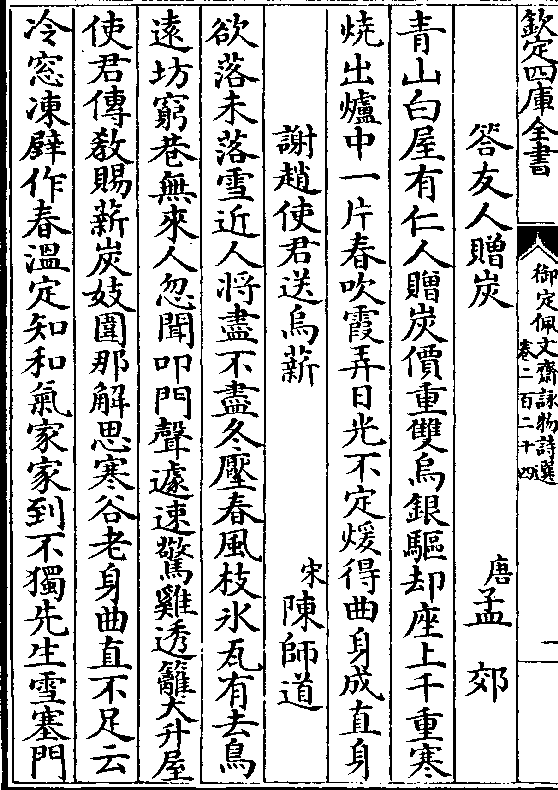 欽定四庫全書
御定佩文齋詠物詩選
卷二百二十四
一
答友人贈炭
唐孟郊
青山白屋有仁人贈炭價重雙烏銀驅却座上千重寒
燒出爐中一片春吹霞弄日光不定煖得曲身成直身
謝趙使君送烏薪
宋陳師道
欲落未落雪近人將盡不盡冬壓春風枝氷瓦有去鳥
遠坊窮巷無來人忽聞叩門聲遽速驚雞透籬犬升屋
使君傳敎賜薪炭妓圍那解思寒谷老身曲直不足云
冷窓凍壁作春温定知和氣家家到不獨先生雪塞門